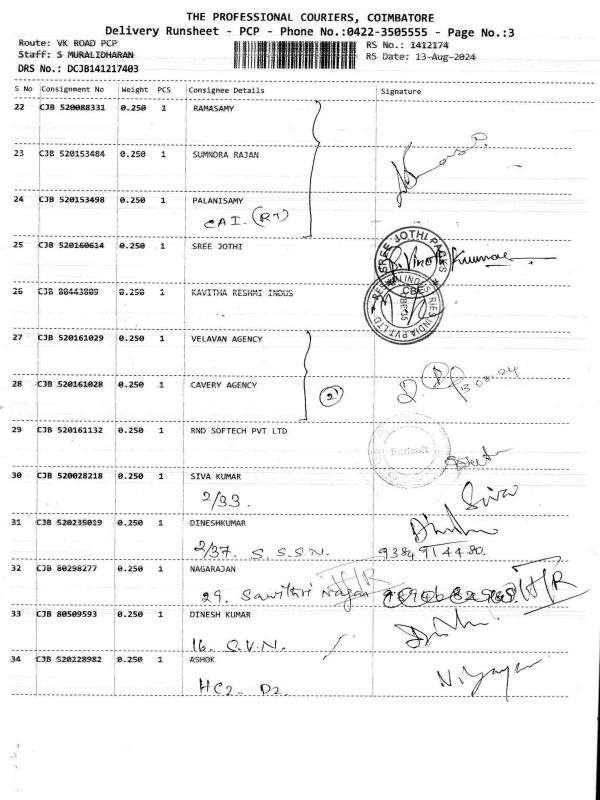 THE PROFESSIONAL COURIERS, COIMBATORE
Delivery Runsheet - PCP - Phone No.:0422-3505555 - Page No.:3
Route: VK ROAD PCP RS No.: 1412174
Staff: S MURALIDHARAN RS Date: 13-Aug-2024
DRS No.: DCJB141217403
S No Consignment No Weight PCS Consignee Details Signature
22 CJB 520088331 0.250 1 RAMASAMY
23 CJB 520153484 0.250 1 SUMNDRA RAJAN
24 CJB 520153498 0.250 1 PALANISAMY
CAI. (RT)
25 CJB 520160614 0.250 1 SREE JOTHI
SREE JOTHI PACKS
26 CJB 80443809 0.250 1 KAVITHA RESHMI INDUS
27 CJB 520161029 0.250 1 VELAVAN AGENCY
28 CJB 520161028 0.250 1 CAVERY AGENCY
2
29 CJB 520161132 0.250 1 RND SOFTECH PVT LTD
30 CJB 520028218 0.250 1 SIVA KUMAR
2/33. Siva
31 CJB 520235019 0.250 1 DINESHKUMAR
2/37. S.S.S.N. 9384914480.
32 CJB 80298277 0.250 1 NAGARAJAN
H/R
29. Sawithri Nagar H/R
33 CJB 80509593 0.250 1 DINESH KUMAR
16. Q.V.N.
34 CJB 520228982 0.250 1 ASHOK
HC2- D2.